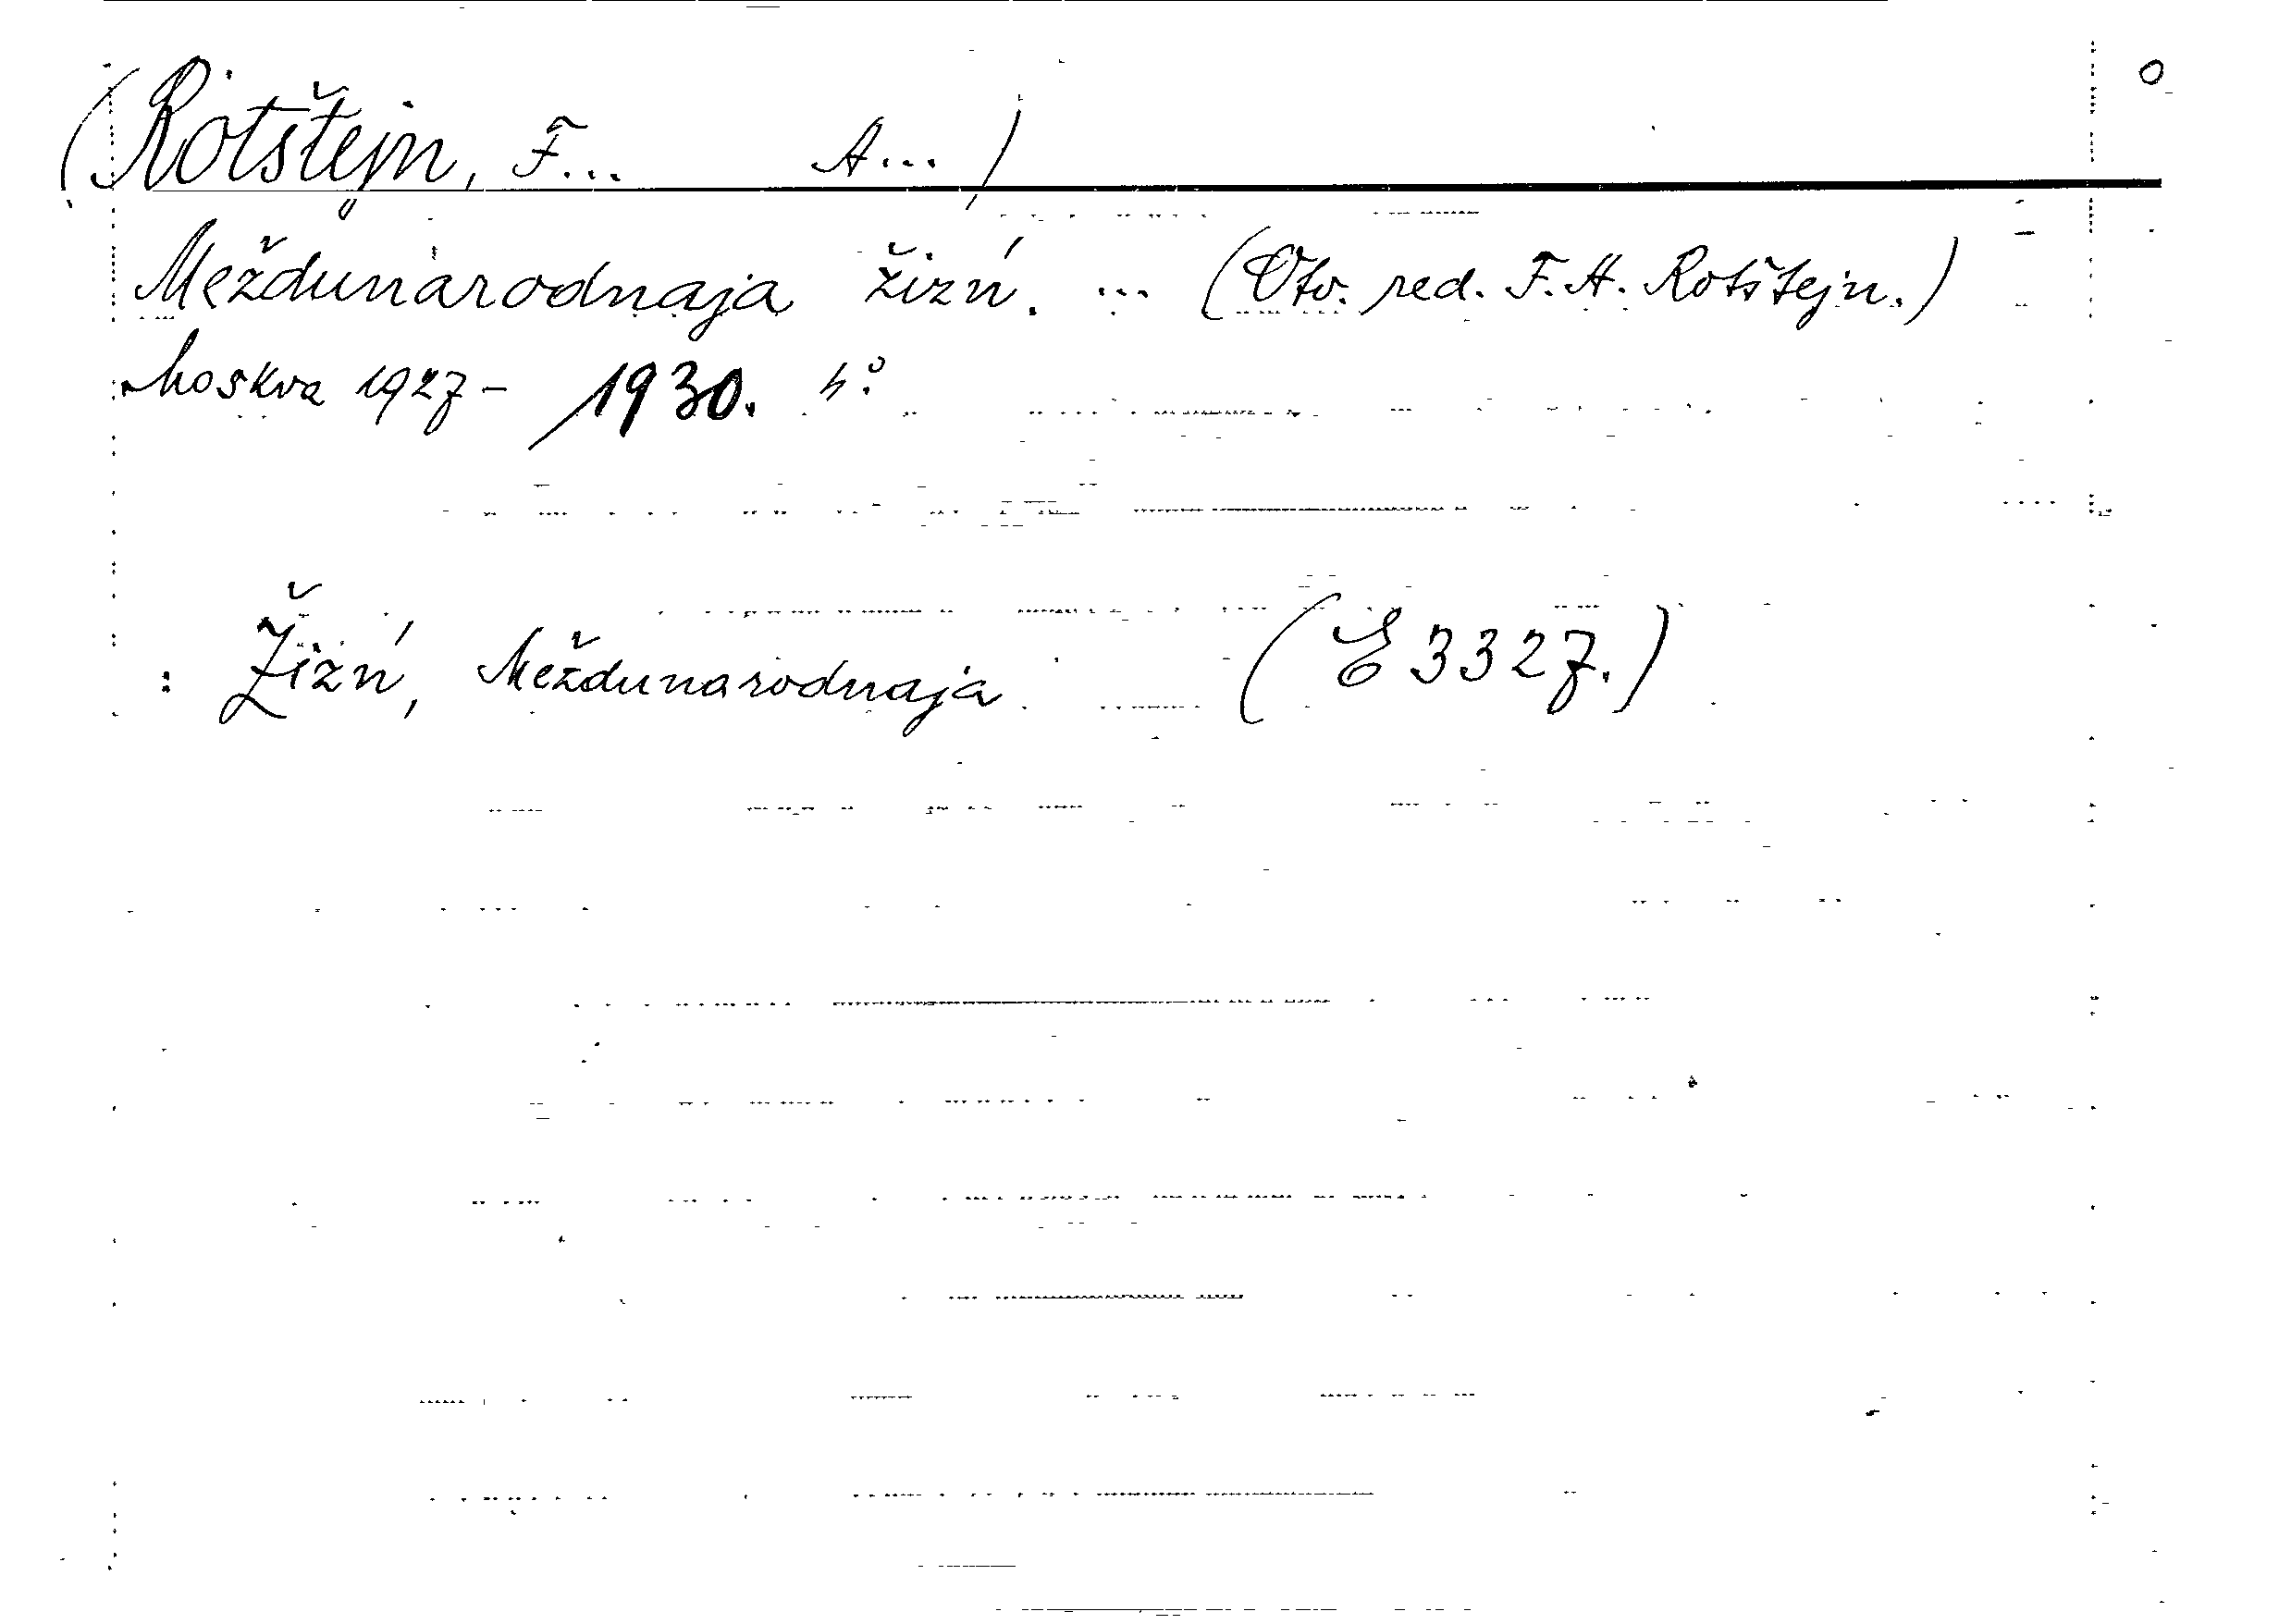 (Rotštejn, F... A...)
Meždunarodnaja žizń. ... (Otv. red. F.A. Rotštejn.)
Moskva 1927-1930. 4°.
: Žizń, Meždunarodnaja (E 3327.)